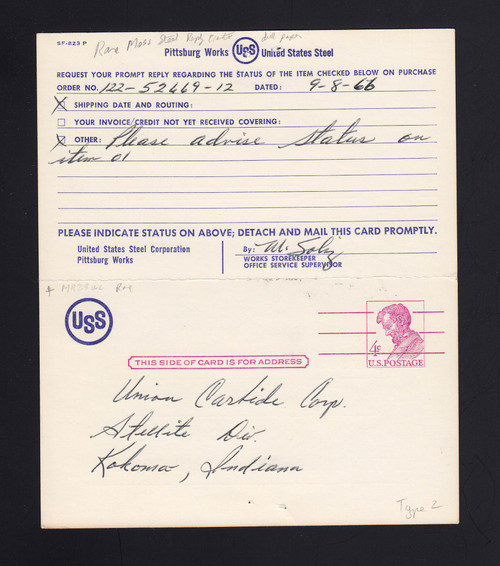 SF-823 P
Rare Mass Steel Reply Card
Pittsburg Works USS United States Steel
REQUEST YOUR PROMPT REPLY REGARDING THE STATUS OF THE ITEM CHECKED BELOW ON PURCHASE
ORDER NO. 122-52669-12 DATED: 9-8-66
X SHIPPING DATE AND ROUTING:
☐ YOUR INVOICE/CREDIT NOT YET RECEIVED COVERING:
X OTHER: Please advise status on
item 01
PLEASE INDICATE STATUS ON ABOVE; DETACH AND MAIL THIS CARD PROMPTLY.
United States Steel Corporation
Pittsburg Works
By: M. Soliz
WORKS STOREKEEPER
OFFICE SERVICE SUPERVISOR
Rare
USS
4¢
U.S. POSTAGE
THIS SIDE OF CARD IS FOR ADDRESS
Union Carbide Corp.
Stellite Div.
Kokomo, Indiana
Type 2